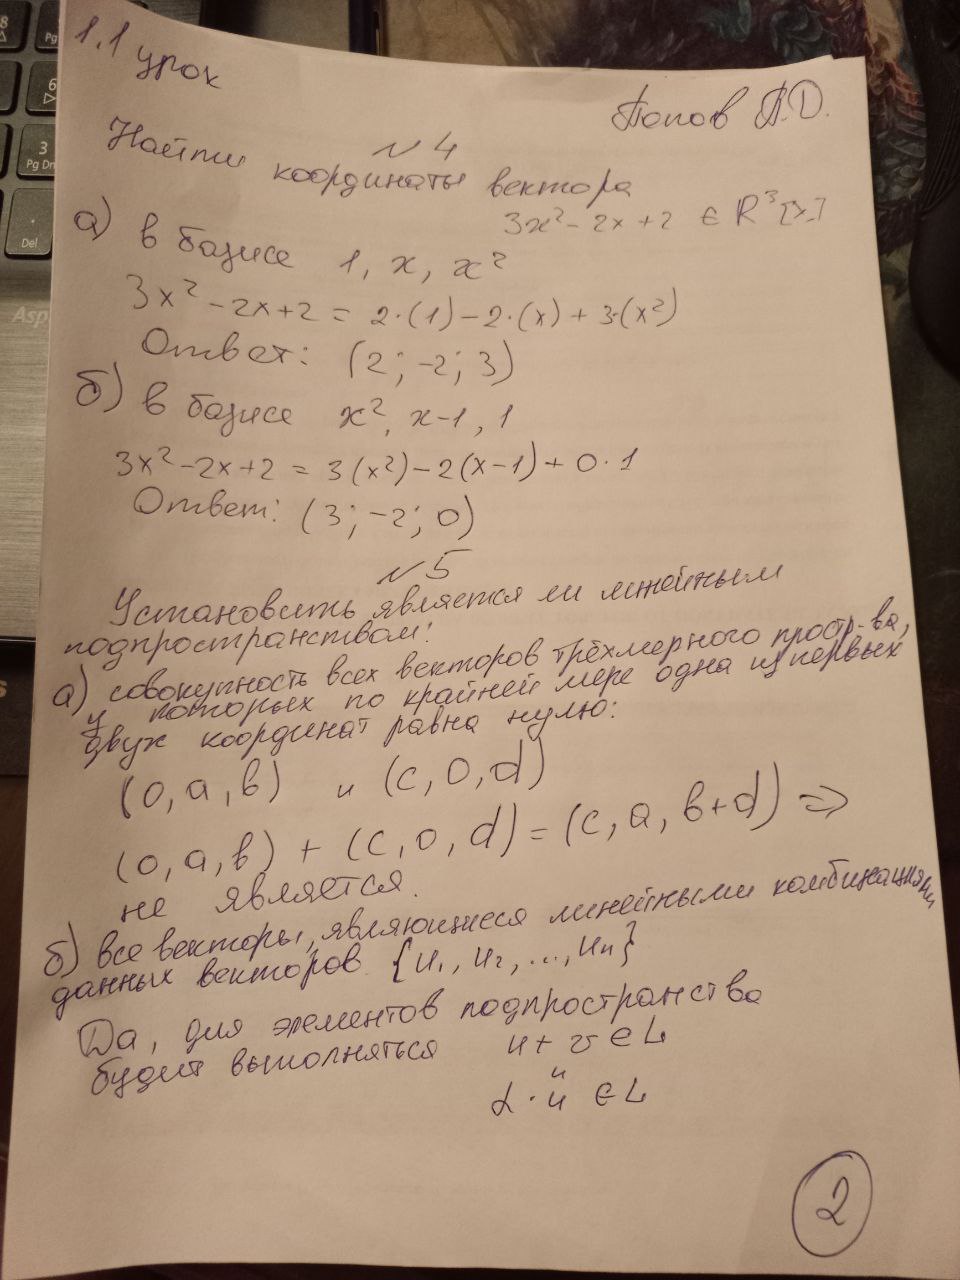 1.1 урок
Попов П.D.
№ 4
Найти координаты вектора
3x² - 2x + 2 ∈ R³[x]
а) в базисе 1, x, x²
3x² - 2x + 2 = 2·(1) - 2·(x) + 3·(x²)
Ответ: (2; -2; 3)
б) в базисе x², x-1, 1
3x² - 2x + 2 = 3(x²) - 2(x-1) + 0·1
Ответ: (3; -2; 0)
№ 5
Установить, является ли линейным
подпространством:
а) совокупность всех векторов трёхмерного простр-ва,
у которых по крайней мере одна из первых
двух координат равна нулю:
(0, a, b) и (c, 0, d)
(0, a, b) + (c, 0, d) = (c, a, b+d) ⇒
не является.
б) все векторы, являющиеся линейными комбинациями
данных векторов {u₁, u₂, ..., uₙ}
Да, для элементов подпространства
будет выполняться u + v ∈ L
и
α · u ∈ L
2
Pg Dn
Del
Asp